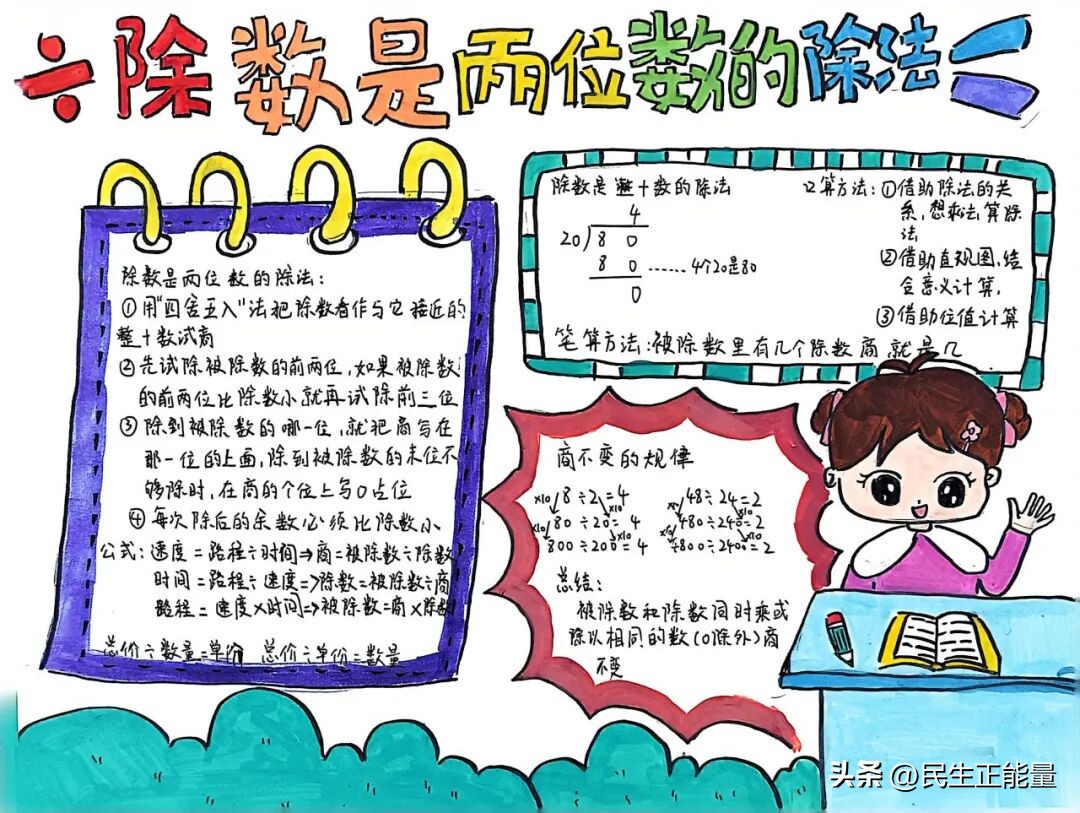 ÷除数是两位数的除法=
除数是两位数的除法:
①用"四舍五入"法把除数看作与它接近的
整十数试商
②先试除被除数的前两位,如果被除数
的前两位比除数小就再试除前三位
③除到被除数的哪一位,就把商写在
那一位的上面,除到被除数的末位不
够除时,在商的个位上写0点位
④每次除后的余数必须比除数小
公式:速度=路程÷时间⇒商=被除数÷除数
时间=路程÷速度=>除数=被除数÷商
路程=速度×时间=>被除数=商×除数
总价÷数量=单价 总价÷单价=数量
除数是整十数的除法
4
20)80
80……4个20是80
0
口算方法:①借助除法的关
系,想乘法,算除
法
②借助直观图,结
合意义计算,
③借助位值计算
笔算方法:被除数里有几个除数商就是几
商不变的规律
8÷2=4
×10 ×10
80÷20=4
×10 ×10
800÷200=4
48÷24=2
×10 ×10
480÷240=2
×10 ×10
4800÷240=2
总结:
被除数和除数同时乘或
除以相同的数(0除外)商
不变
头条 @民生正能量